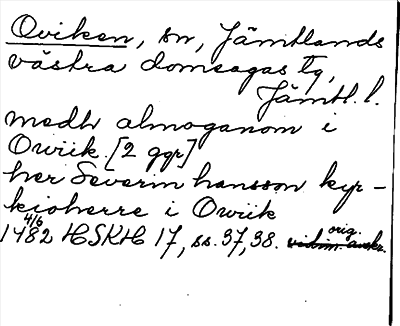 Oviken, sn, Jämtlands
västra domsagas tg,
Jämtl. l.
medh almoganom i
Owiik. [2 ggr]
her Seuerin hansson kyr-
kioherre i Owiik
4/6
orig.
1482 HSKH 17, ss. 37, 38.